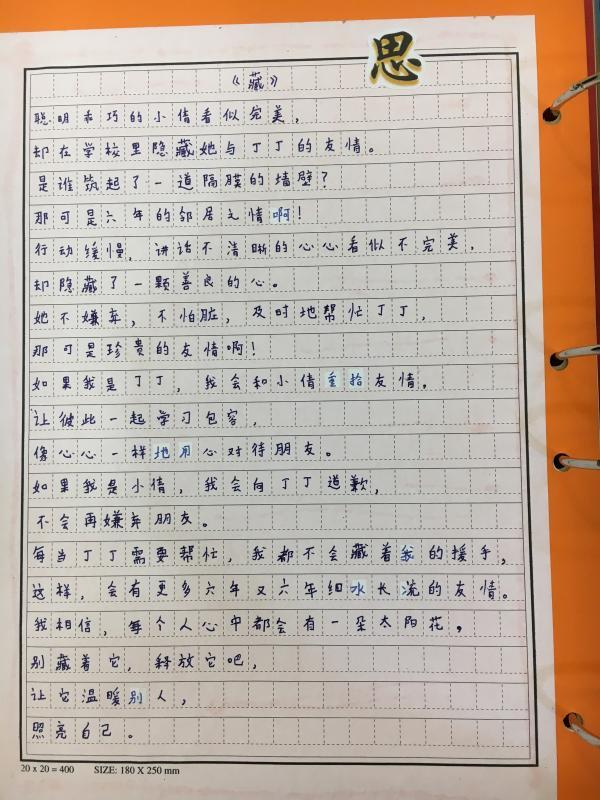 思
《藏》
聪明乖巧的小倩看似完美，
却在学校里隐藏她与丁丁的友情。
是谁筑起了一道隔膜的墙壁？
那可是六年的邻居之情啊！
行动缓慢，讲话不清晰的心心看似不完美，
却隐藏了一颗善良的心。
她不嫌弃，不怕脏，及时地帮忙丁丁，
那可是珍贵的友情啊！
如果我是丁丁，我会和小倩重拾友情，
让彼此一起学习包容，
像心心一样地用心对待朋友。
如果我是小倩，我会向丁丁道歉，
不会再嫌弃朋友。
每当丁丁需要帮忙，我都不会藏着我的援手，
这样，会有更多六年又六年细水长流的友情。
我相信，每个人心中都会有一朵太阳花，
别藏着它，释放它吧，
让它温暖别人，
照亮自己。
20 x 20 = 400 SIZE: 180 X 250 mm